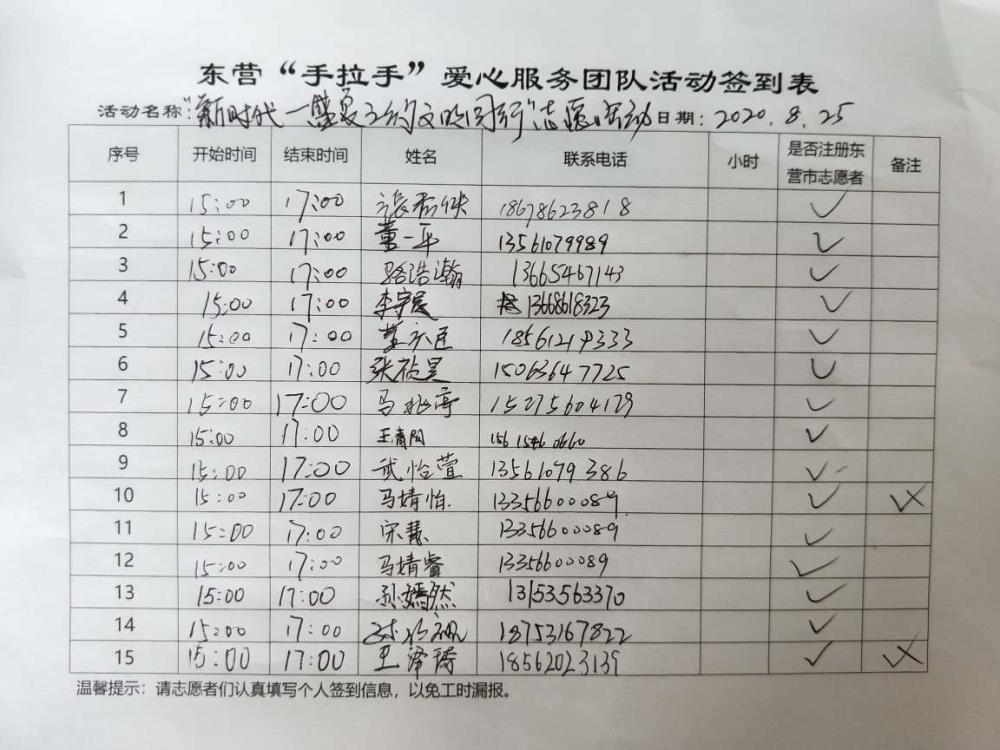 东营“手拉手”爱心服务团队活动签到表
活动名称:“新时代—盛夏之约文明同行”志愿活动 日期：2020.8.25
序号 开始时间 结束时间 姓名 联系电话 小时 是否注册东营市志愿者 备注
1 15:00 17:00 18678623818 ✓
2 15:00 17:00 董一平 13561079989 ✓
3 15:00 17:00 路浩瀚 13665467143 ✓
4 15:00 17:00 李宇晨 13668618323 ✓
5 15:00 17:00 18561219333 ✓
6 15:00 17:00 张祯昊 15063647725 ✓
7 15:00 17:00 马兆亭 15275604179 ✓
8 15:00 17:00 王青阳 156 1546 0660 ✓
9 15:00 17:00 武怡萱 13561079386 ✓
10 15:00 17:00 马婧怡 13356600089 ✓
11 15:00 17:00 宋慧 13356600089 ✓
12 15:00 17:00 马婧睿 13356600089 ✓
13 15:00 17:00 孙嫣然 13153563370 ✓
14 15:00 17:00 18753167822 ✓
15 15:00 17:00 王泽琦 18562023139 ✓
温馨提示：请志愿者们认真填写个人签到信息，以免工时漏报。